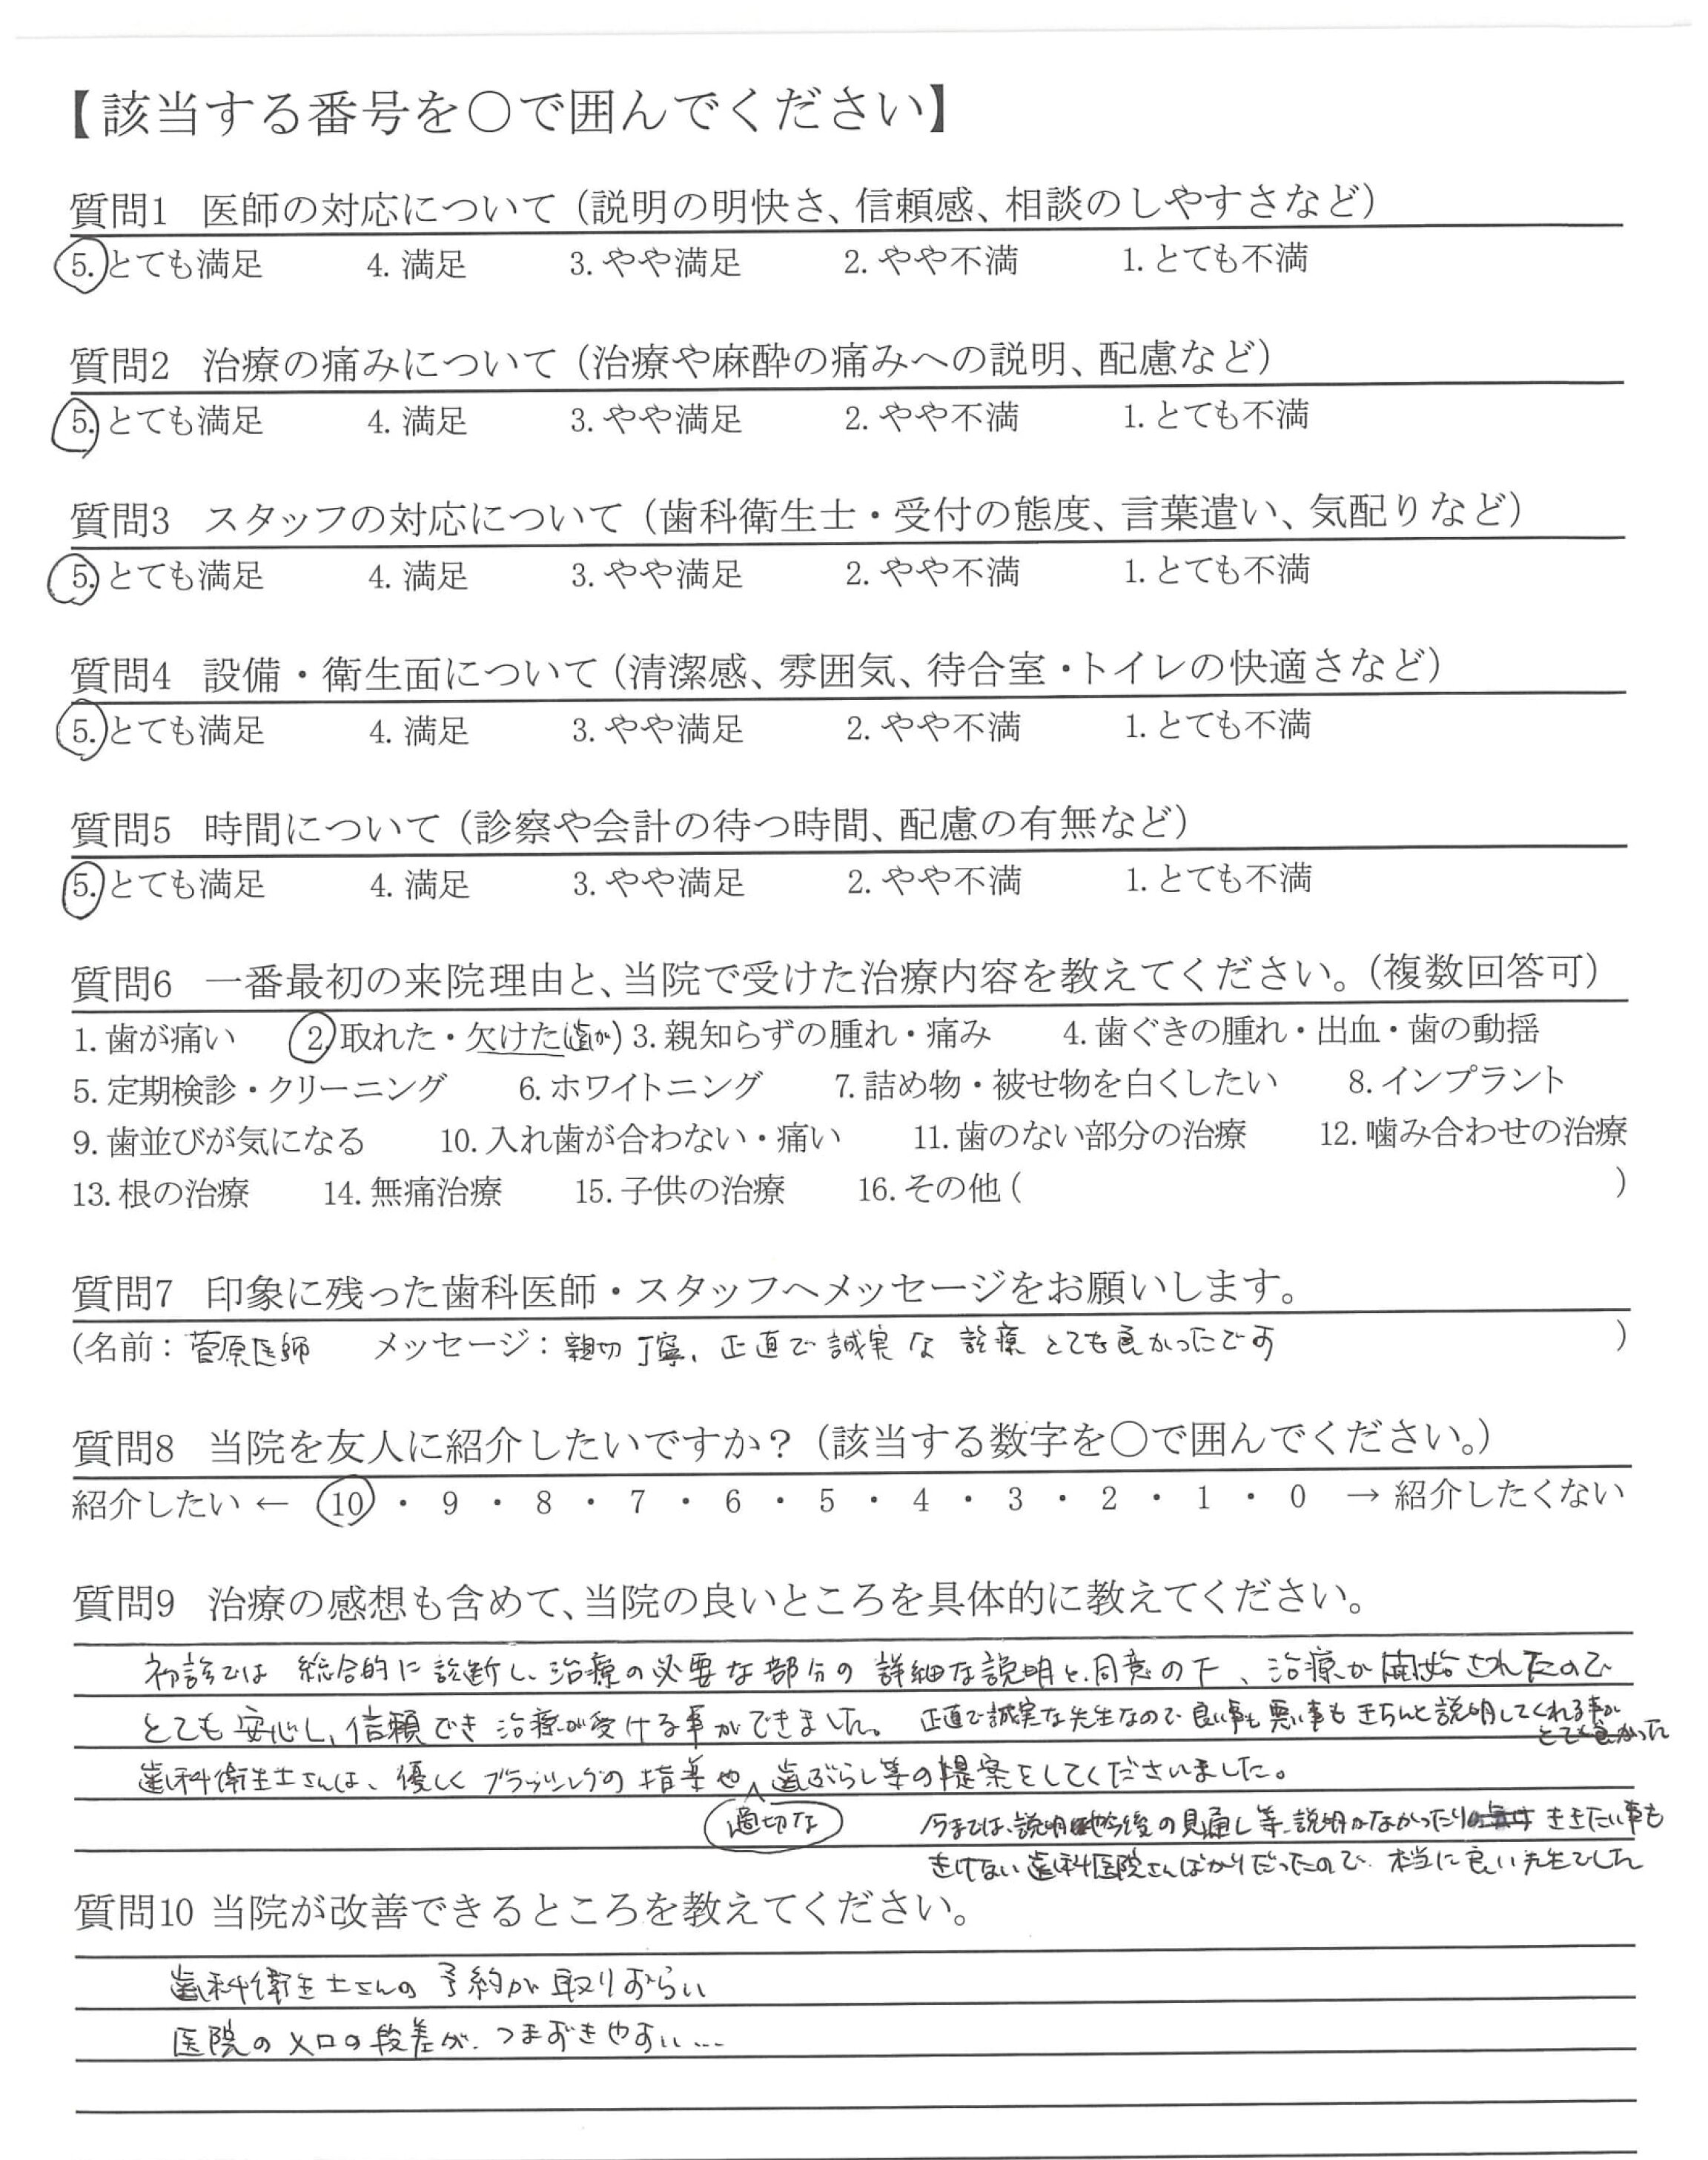 【該当する番号を〇で囲んでください】
質問1 医師の対応について（説明の明快さ、信頼感、相談のしやすさなど）
5. とても満足 4. 満足 3. やや満足 2. やや不満 1. とても不満
質問2 治療の痛みについて（治療や麻酔の痛みへの説明、配慮など）
5. とても満足 4. 満足 3. やや満足 2. やや不満 1. とても不満
質問3 スタッフの対応について（歯科衛生士・受付の態度、言葉遣い、気配りなど）
5. とても満足 4. 満足 3. やや満足 2. やや不満 1. とても不満
質問4 設備・衛生面について（清潔感、雰囲気、待合室・トイレの快適さなど）
5. とても満足 4. 満足 3. やや満足 2. やや不満 1. とても不満
質問5 時間について（診察や会計の待つ時間、配慮の有無など）
5. とても満足 4. 満足 3. やや満足 2. やや不満 1. とても不満
質問6 一番最初の来院理由と、当院で受けた治療内容を教えてください。（複数回答可）
1. 歯が痛い 2. 取れた・欠けた(歯が) 3. 親知らずの腫れ・痛み 4. 歯ぐきの腫れ・出血・歯の動揺
5. 定期検診・クリーニング 6. ホワイトニング 7. 詰め物・被せ物を白くしたい 8. インプラント
9. 歯並びが気になる 10. 入れ歯が合わない・痛い 11. 歯のない部分の治療 12. 噛み合わせの治療
13. 根の治療 14. 無痛治療 15. 子供の治療 16. その他（ ）
質問7 印象に残った歯科医師・スタッフへメッセージをお願いします。
(名前：菅原医師 メッセージ：親切丁寧、正直で誠実な診療とても良かったです )
質問8 当院を友人に紹介したいですか？（該当する数字を〇で囲んでください。）
紹介したい ← 10 ・ 9 ・ 8 ・ 7 ・ 6 ・ 5 ・ 4 ・ 3 ・ 2 ・ 1 ・ 0 → 紹介したくない
質問9 治療の感想も含めて、当院の良いところを具体的に教えてください。
初診では総合的に診断し、治療の必要な部分の詳細な説明と、同意の下、治療が開始されたので
とても安心し、信頼でき治療が受ける事ができました。正直で誠実な先生なので良い事も悪い事もきちんと説明してくれる事が
とても良かった
歯科衛生士さんは、優しくブラッシングの指導や、歯ぶらし等の提案をしてくださいました。
適切な
今までは、説明や今後の見通し等、説明がなかったり ききたい事も
きけない歯科医院さんばかりだったので、本当に良い先生でした
質問10 当院が改善できるところを教えてください。
歯科衛生士さんの予約が取りずらい
医院の入口の段差が、つまずきやすい…